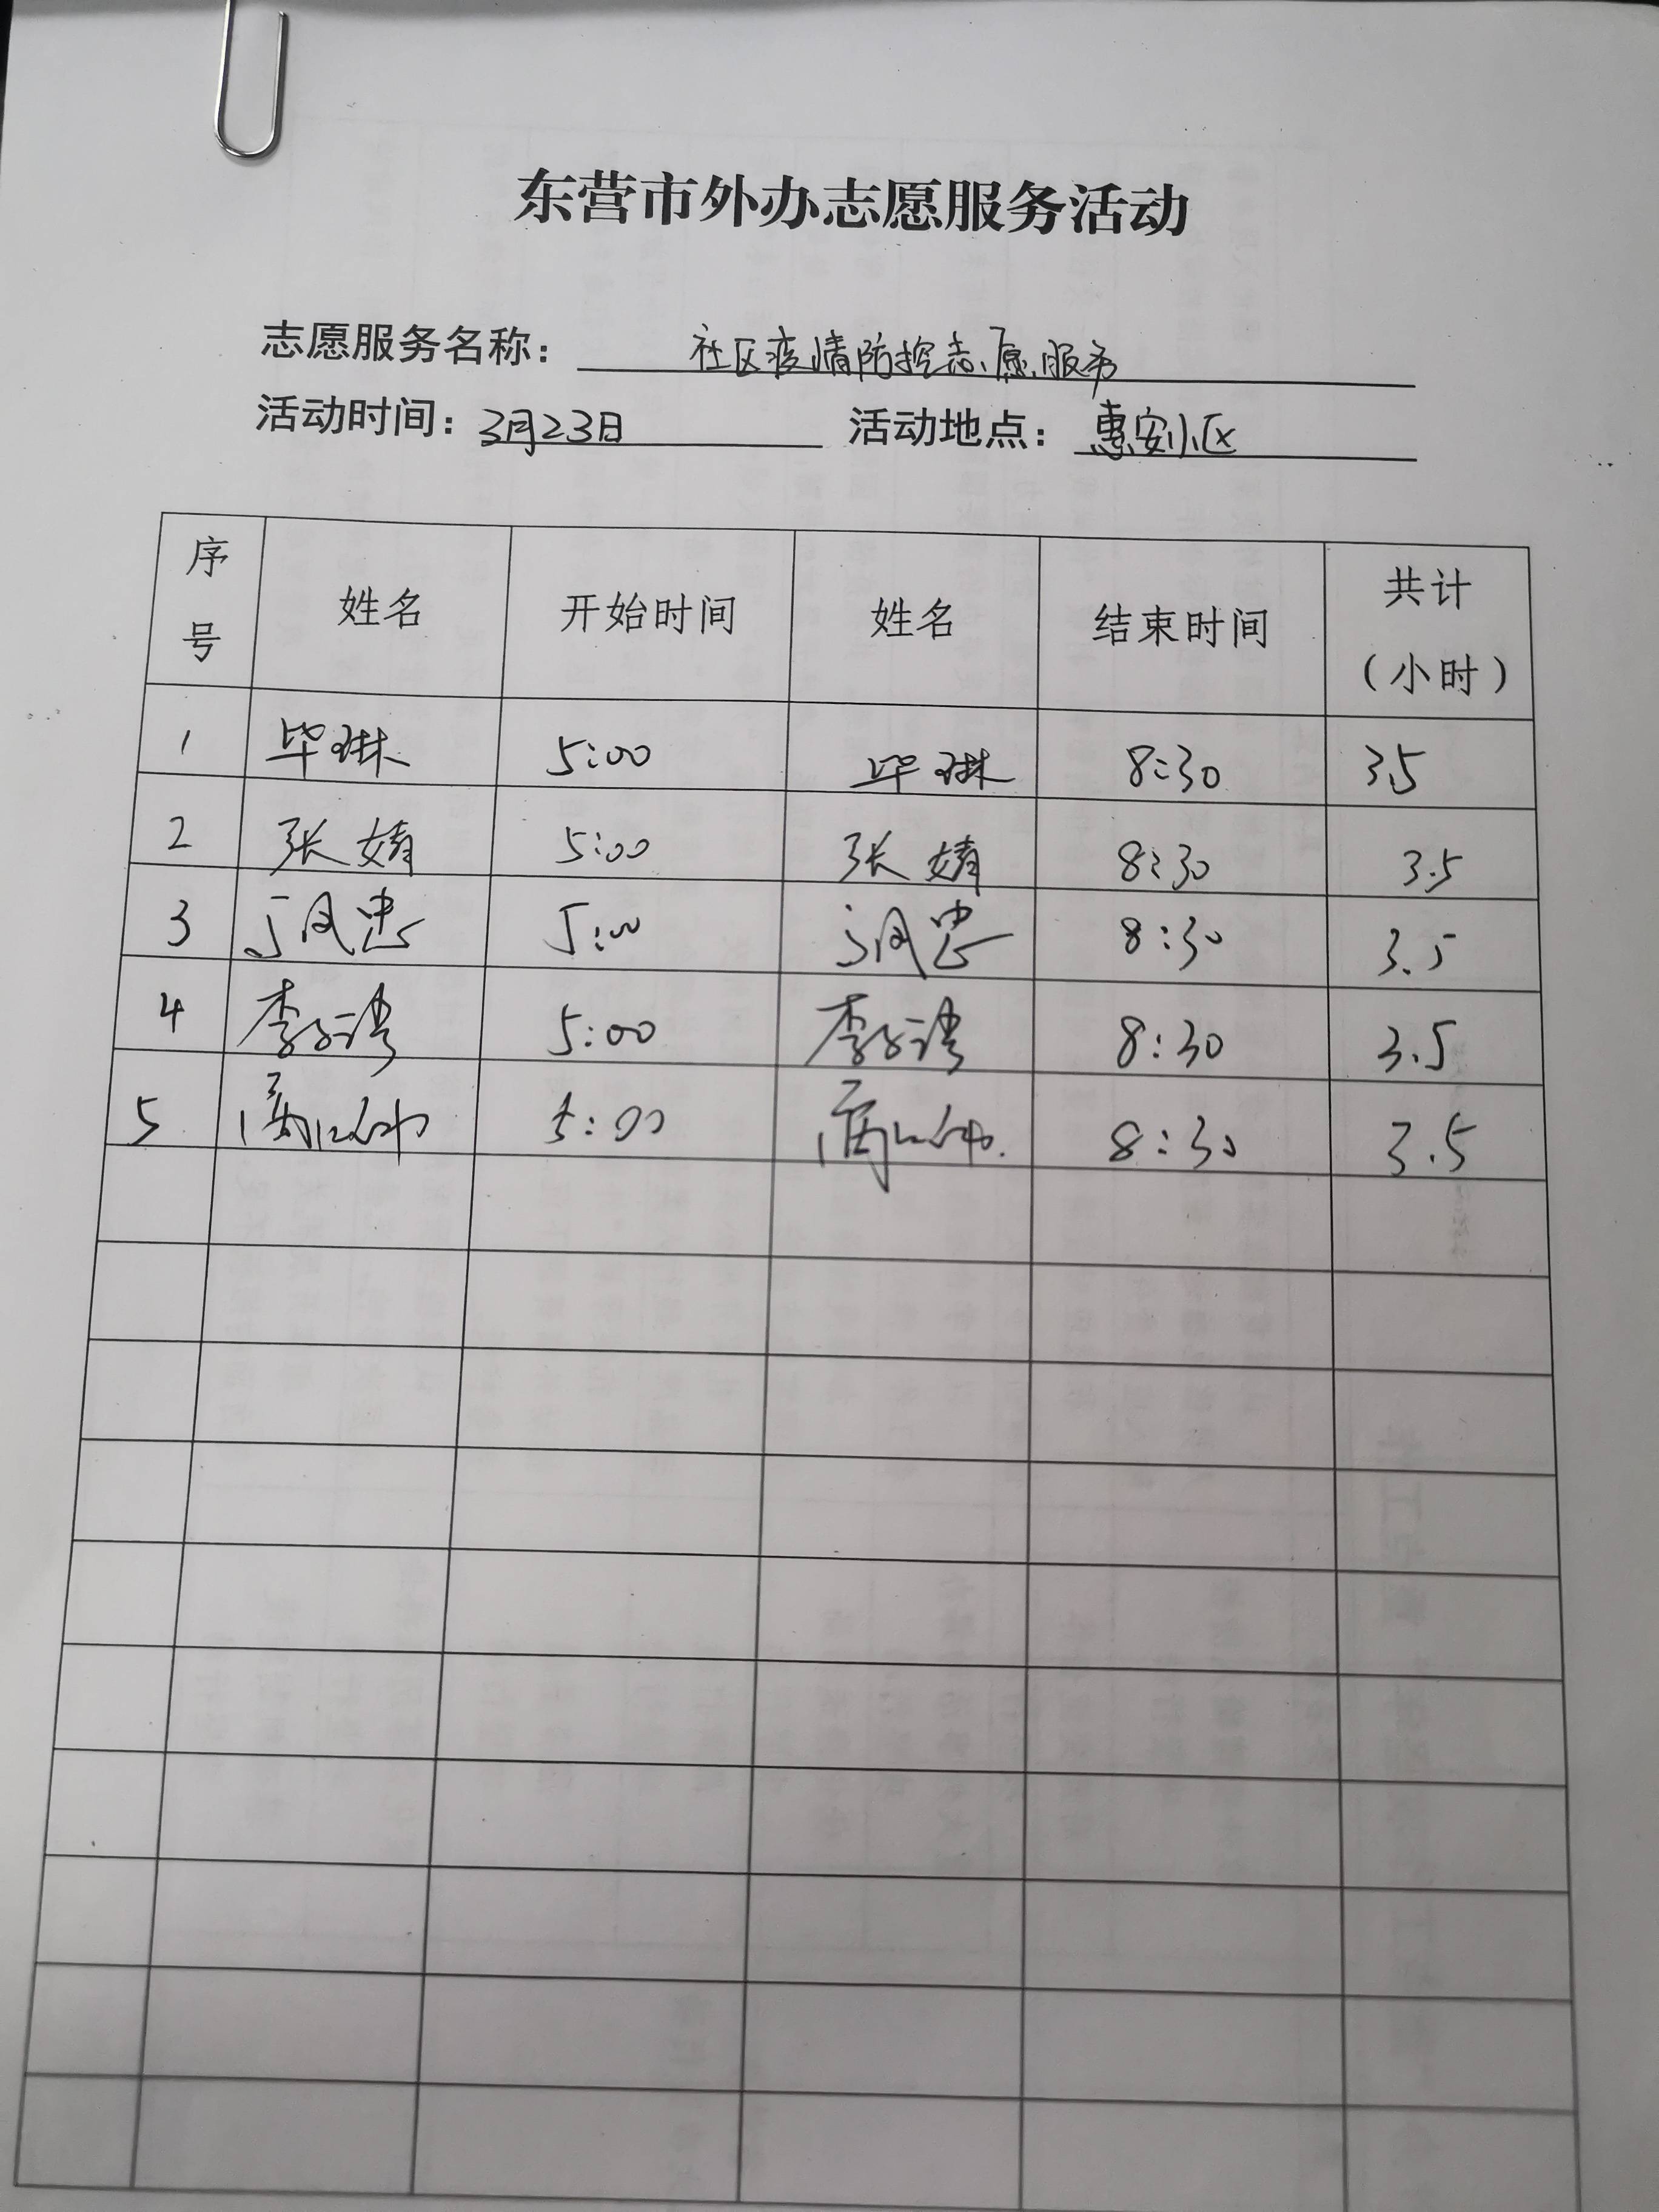 东营市外办志愿服务活动
志愿服务名称：社区疫情防控志愿服务
活动时间：3月23日 活动地点：惠安小区
序号 姓名 开始时间 姓名 结束时间 共计（小时）
1 毕琳 5:00 毕琳 8:30 3.5
2 张婧 5:00 张婧 8:30 3.5
3 5:00 8:30 3.5
4 李 5:00 李 8:30 3.5
5 5:00 8:30 3.5